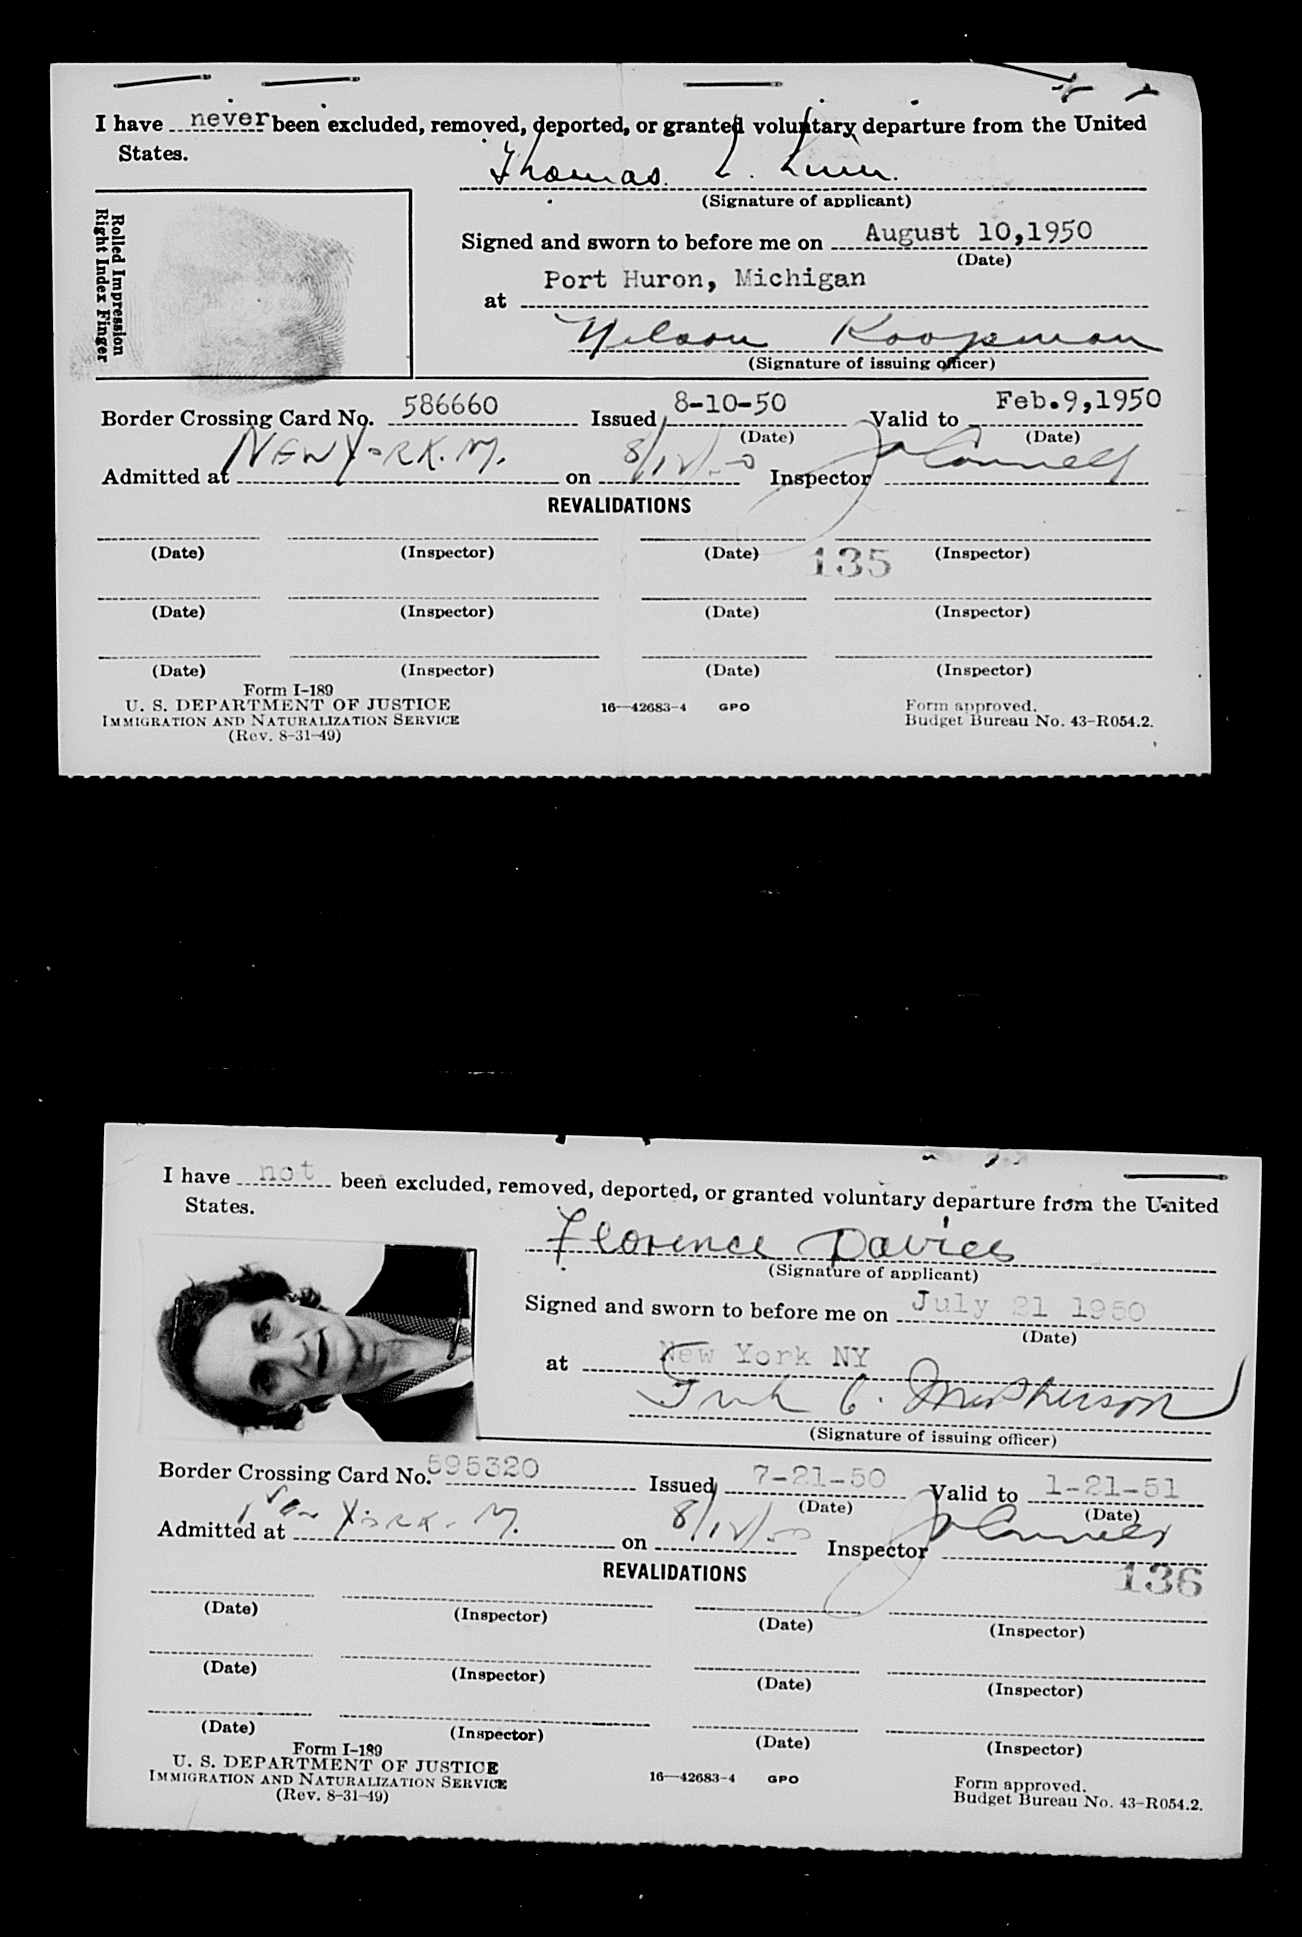 I have never been excluded, removed, deported, or granted voluntary departure from the United
States.
Thomas L.
(Signature of applicant)
Rolled Impression
Right Index Finger
Signed and sworn to before me on August 10,1950
(Date)
at Port Huron, Michigan
Nelson Koopman
(Signature of issuing officer)
Border Crossing Card No. 586660 Issued 8-10-50 Valid to Feb.9,1950
(Date) (Date)
Admitted at NEW YORK. NY. on 8/12/50 Inspector
REVALIDATIONS
(Date) (Inspector) (Date) 135 (Inspector)
(Date) (Inspector) (Date) (Inspector)
(Date) (Inspector) (Date) (Inspector)
Form I-189
U. S. DEPARTMENT OF JUSTICE
IMMIGRATION AND NATURALIZATION SERVICE
(Rev. 8-31-49)
16—42683-4 GPO
Form approved.
Budget Bureau No. 43-R054.2.
I have not been excluded, removed, deported, or granted voluntary departure from the United
States.
Florence Davies
(Signature of applicant)
Signed and sworn to before me on July 21 1950
(Date)
at New York NY
C. McPherson
(Signature of issuing officer)
Border Crossing Card No. 595320 Issued 7-21-50 Valid to 1-21-51
(Date) (Date)
Admitted at New York. NY. on 8/12/50 Inspector
136
REVALIDATIONS
(Date) (Inspector) (Date) (Inspector)
(Date) (Inspector) (Date) (Inspector)
(Date) (Inspector) (Date) (Inspector)
Form I-189
U. S. DEPARTMENT OF JUSTICE
IMMIGRATION AND NATURALIZATION SERVICE
(Rev. 8-31-49)
16—42683-4 GPO
Form approved.
Budget Bureau No. 43-R054.2.